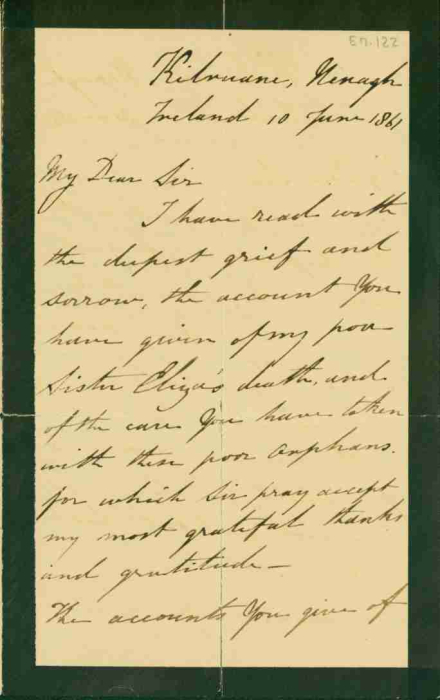 En.122
Kilruane, Nenagh
Ireland 10 June 1861
My Dear Sir
I have read with
the deepest grief and
sorrow, the account You
have given of my poor
Sister Eliza's death, and
of the care You have taken
with these poor Orphans.
for which Sir pray accept
my most grateful thanks
and gratitude —
The accounts You give of